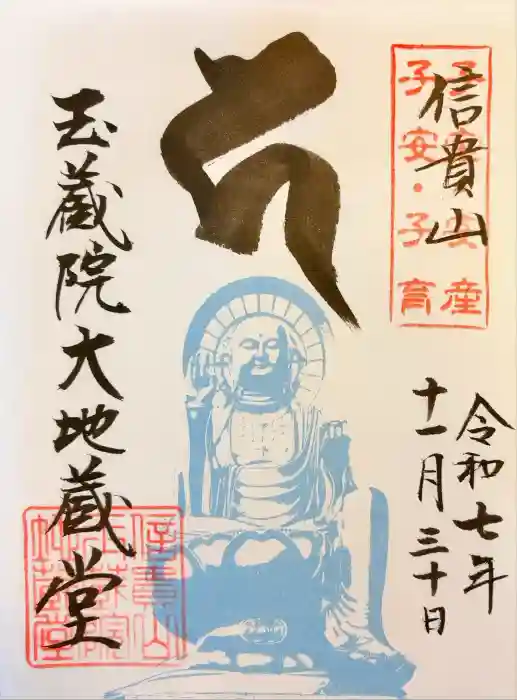 信貴山
子安・子育
令和七年
十一月三十日
𑖮
玉蔵院大地蔵堂
信貴山
玉蔵院
地蔵堂